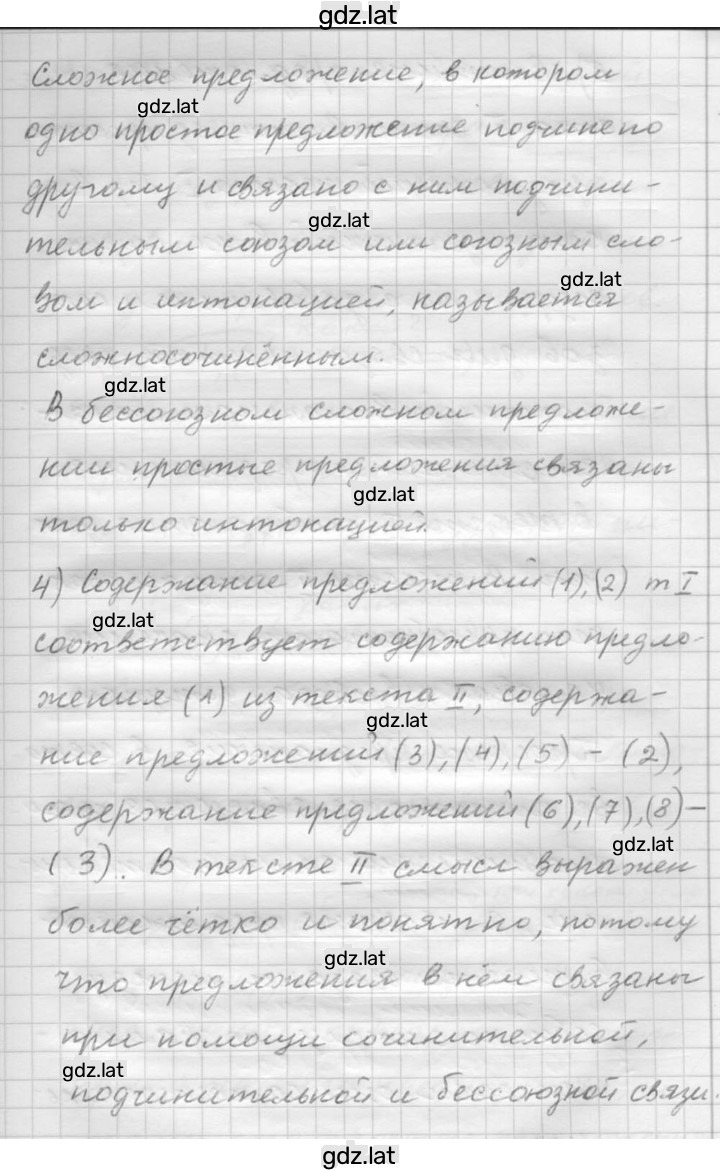 gdz.lat
Сложное предложение, в котором
gdz.lat
одно простое предложение подчинено
другому и связано с ним подчини-
gdz.lat
тельным союзом или союзным сло-
gdz.lat
вом и интонацией, называется
сложносочинённым.
gdz.lat
В бессоюзном сложном предложе-
нии простые предложения связаны
gdz.lat
только интонацией.
4) Содержание предложений (1), (2) т I
gdz.lat
соответствует содержанию предло-
жения (1) из текста II, содержа-
gdz.lat
ние предложений (3), (4), (5) – (2),
содержание предложений (6), (7), (8) –
gdz.lat
(3). В тексте II смысл выражен
более чётко и понятно, потому
gdz.lat
что предложения в нём связаны
при помощи сочинительной,
gdz.lat
подчинительной и бессоюзной связи.
gdz.lat